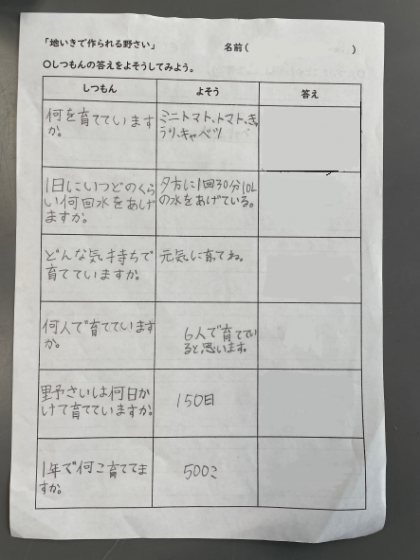 「地いきで作られる野さい」 名前( )
○しつもんの答えをよそうしてみよう。
しつもん よそう 答え
何を育てています
か。
ミニトマト、トマト、きゅ
うり、キャベツ
1日にいつどのくら
い何回水をあげ
ますか。
夕方に1回30分10L
の水をあげている。
どんな気持ちで
育てていますか。
元気に育てね。
何人で育てています
か。
6人で育ててい
ると思います。
野さいは何日か
けて育てていますか。
150日
1年で何こ育ててま
すか。
500こ